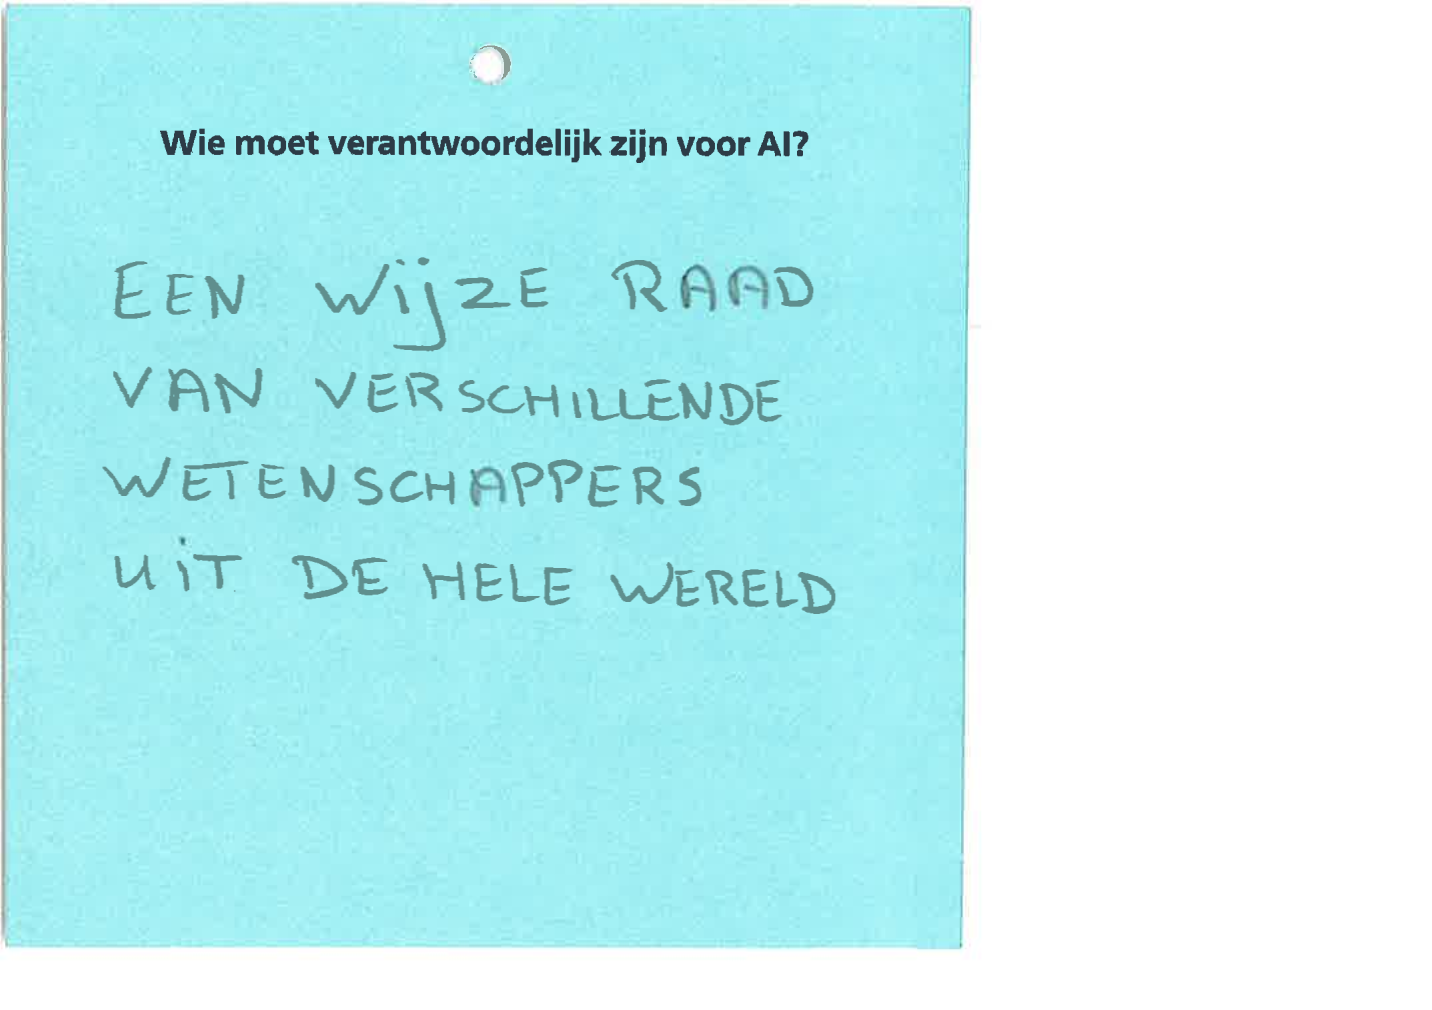 Wie moet verantwoordelijk zijn voor AI?
EEN WijZE RAAD
VAN VERSCHILLENDE
WETENSCHAPPERS
UiT DE HELE WERELD